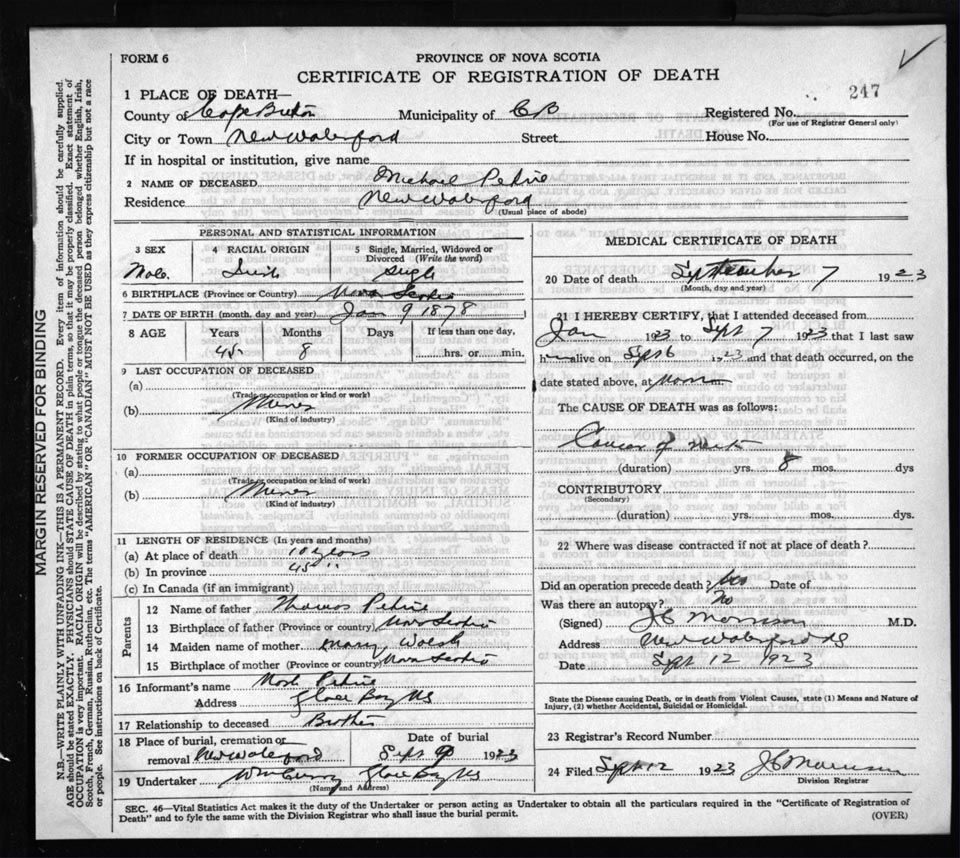 FORM 6
PROVINCE OF NOVA SCOTIA
CERTIFICATE OF REGISTRATION OF DEATH
247
1 PLACE OF DEATH—
County of Cape Breton Municipality of C B Registered No.
(For use of Registrar General only)
City or Town New Waterford Street House No.
If in hospital or institution, give name
2 NAME OF DECEASED Michael Petrie
Residence New Waterford
(Usual place of abode)
PERSONAL AND STATISTICAL INFORMATION
3 SEX 4 RACIAL ORIGIN 5 Single, Married, Widowed or Divorced (Write the word)
Male Single
6 BIRTHPLACE (Province or Country) Nova Scotia
7 DATE OF BIRTH (month, day and year) Jan 9 1878
8 AGE Years Months Days If less than one day,
45 8 hrs. or min.
9 LAST OCCUPATION OF DECEASED
(a)
(Trade or occupation or kind or work)
(b) Miner
(Kind of industry)
10 FORMER OCCUPATION OF DECEASED
(a)
(Trade or occupation or kind or work)
(b) Miner
(Kind of industry)
11 LENGTH OF RESIDENCE (In years and months)
(a) At place of death 10 years
(b) In province 45 "
(c) In Canada (if an immigrant)
Parents
12 Name of father Thomas Petrie
13 Birthplace of father (Province or country) Nova Scotia
14 Maiden name of mother Mary Walsh
15 Birthplace of mother (Province or country) Nova Scotia
16 Informant's name Petrie
Address Glace Bay NS
17 Relationship to deceased Brother
18 Place of burial, cremation or removal New Waterford
Date of burial Sept 9 1923
19 Undertaker Wm Curry Glace Bay NS
(Name and Address)
MEDICAL CERTIFICATE OF DEATH
20 Date of death September 7 1923
(Month, day and year)
21 I HEREBY CERTIFY, that I attended deceased from
Jan 1923 to Sept 7 1923 that I last saw
him alive on Sept 6 1923 and that death occurred, on the
date stated above, at noon
The CAUSE OF DEATH was as follows:
Cancer of
(duration) yrs. 8 mos. dys
CONTRIBUTORY
(Secondary)
(duration) yrs. mos. dys
22 Where was disease contracted if not at place of death?
Did an operation precede death? Date of
Was there an autopsy? No
(Signed) J C Morrison M.D.
Address New Waterford NS
Date Sept 12 1923
State the Disease causing Death, or in death from Violent Causes, state (1) Means and Nature of
Injury, (2) whether Accidental, Suicidal or Homicidal.
23 Registrar's Record Number
24 Filed Sept 12 1923 J C Morrison
Division Registrar
SEC. 46—Vital Statistics Act makes it the duty of the Undertaker or person acting as Undertaker to obtain all the particulars required in the "Certificate of Registration of
Death" and to fyle the same with the Division Registrar who shall issue the burial permit.
(OVER)
MARGIN RESERVED FOR BINDING
N.B.—WRITE PLAINLY WITH UNFADING INK—THIS IS A PERMANENT RECORD. Every item of information should be carefully supplied.
AGE should be stated EXACTLY. PHYSICIANS should STATE CAUSE OF DEATH in plain terms, so that it may be properly classified. Exact statement of
OCCUPATION is very important. RACIAL ORIGIN will be described by stating to what people or tongue the deceased person belonged whether English, Irish,
Scotch, French, German, Russian, Ruthenian, etc. The terms "AMERICAN" or "CANADIAN" MUST NOT BE USED as they express citizenship but not a race
or people. See instructions on back of Certificate.